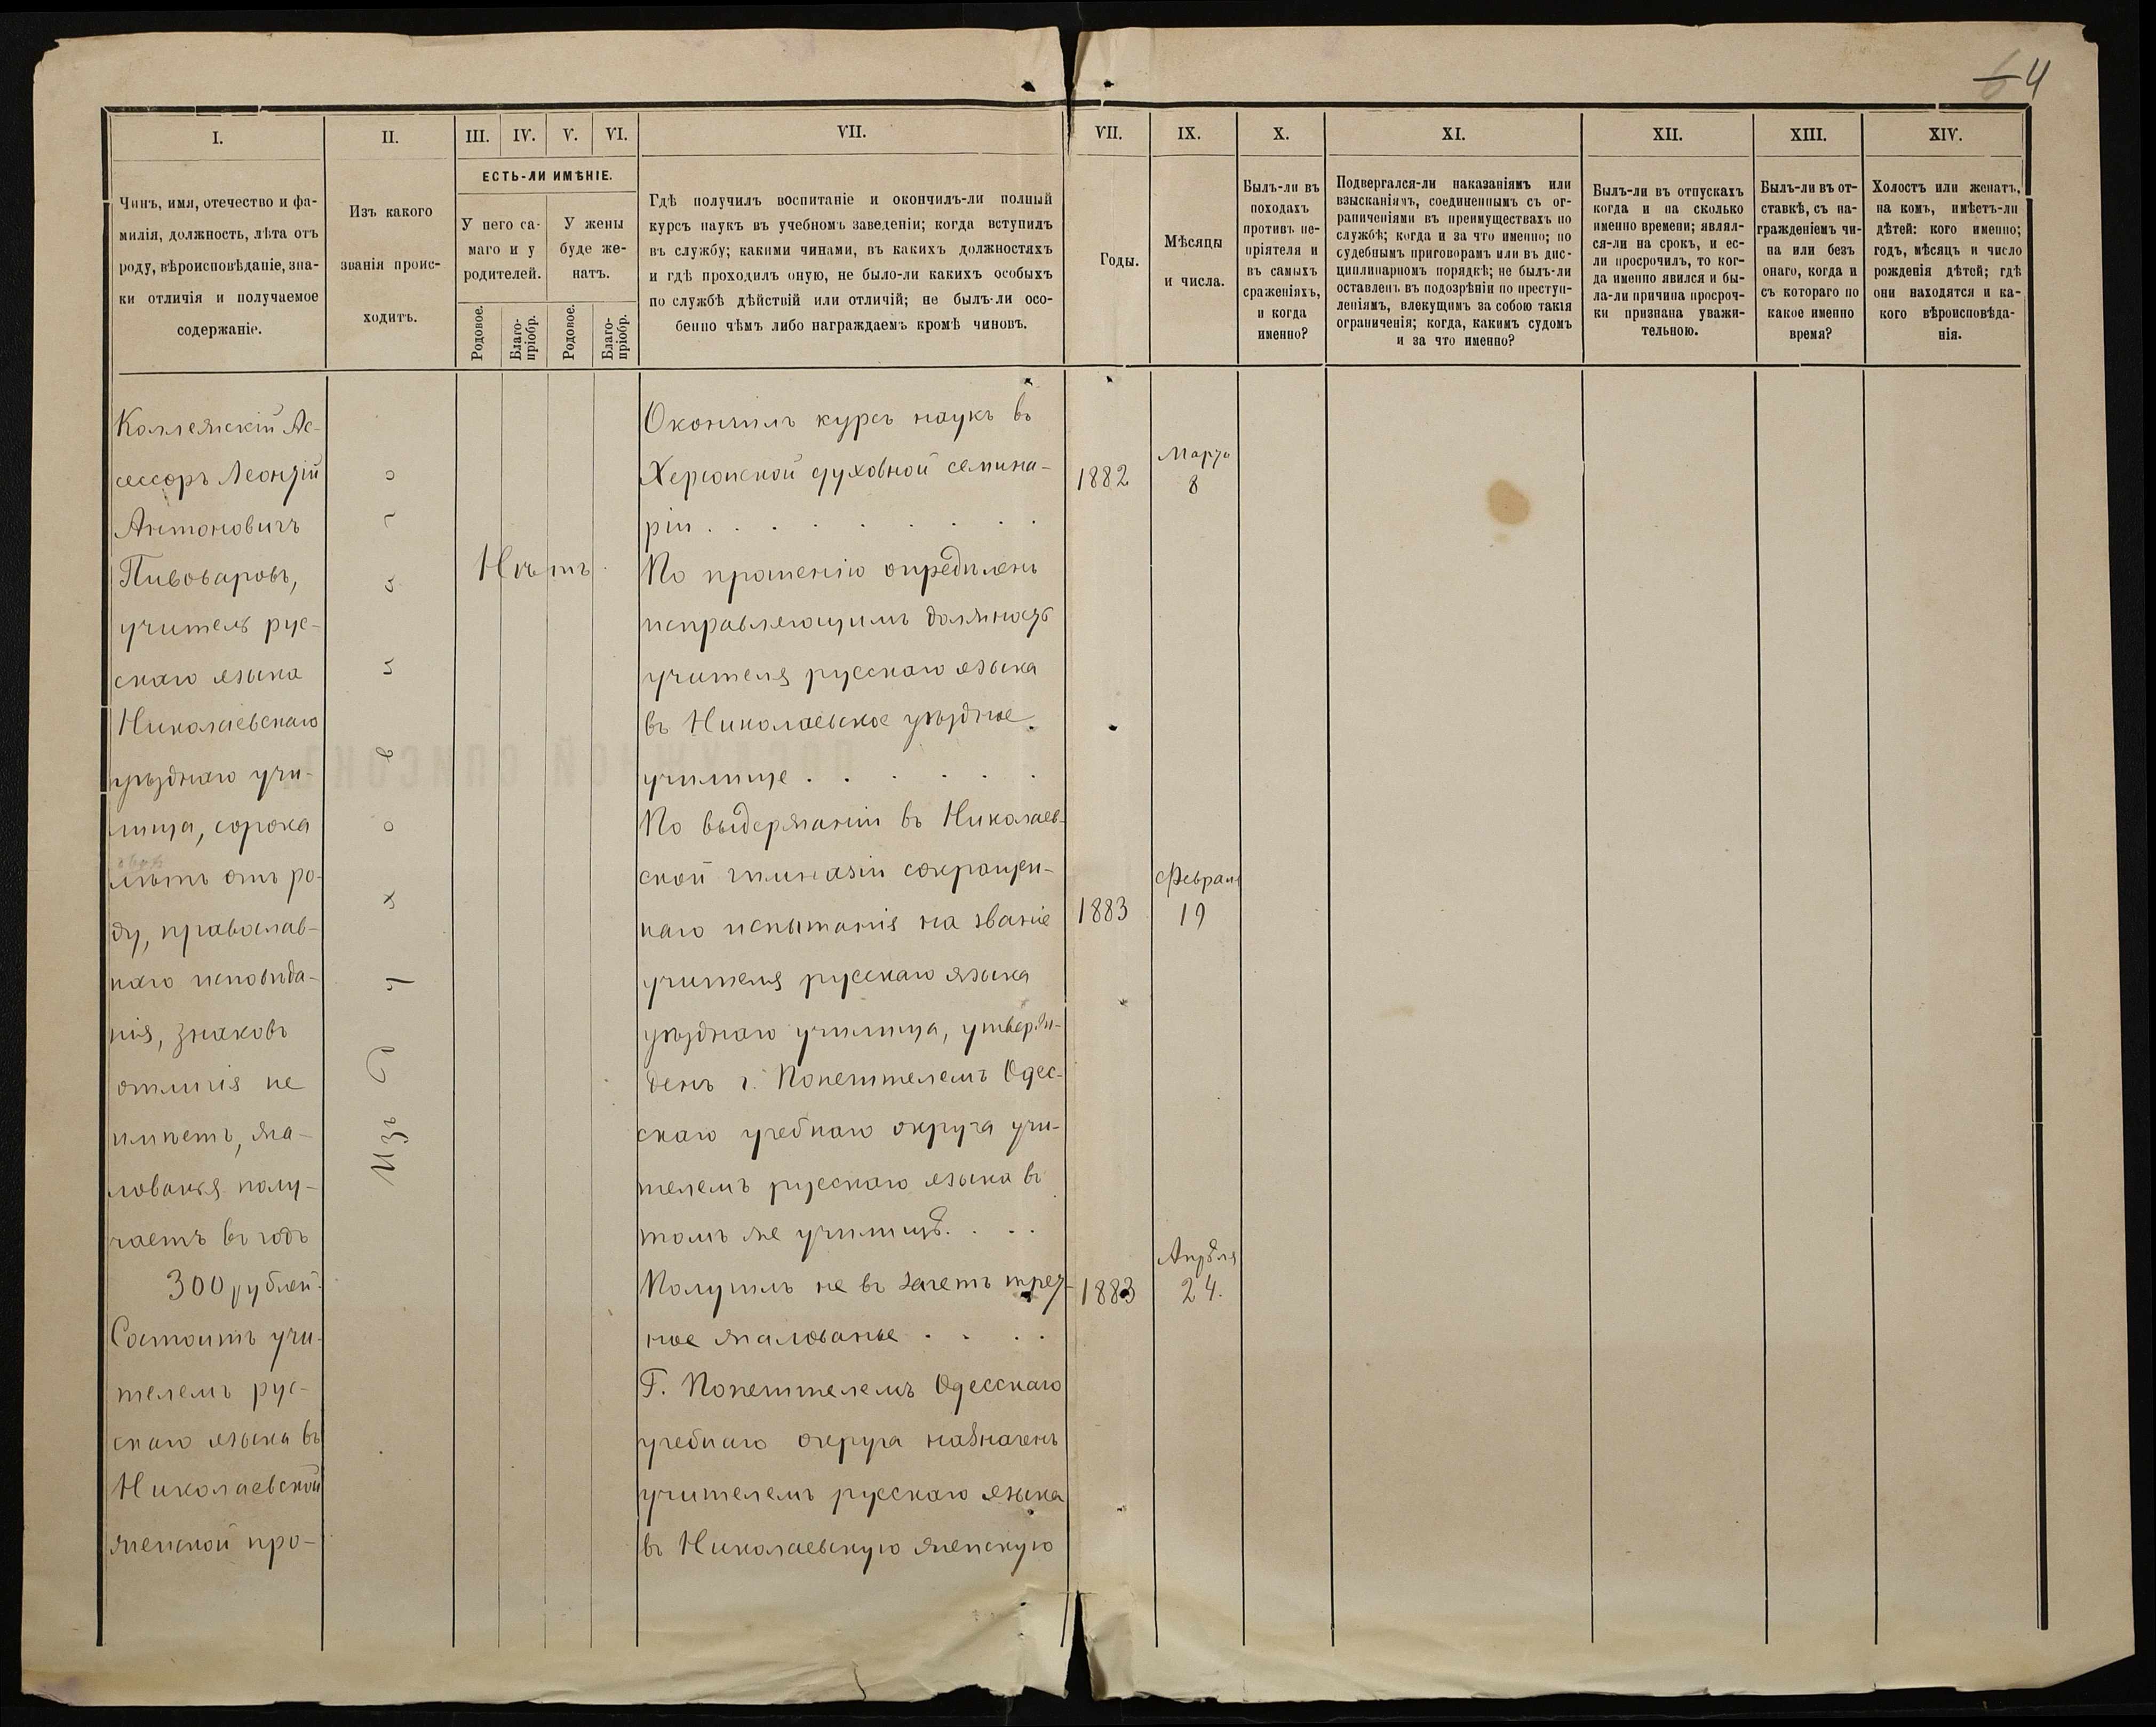 64
I.
II.
III.
IV.
V.
VI.
VII.
VII.
IX.
X.
XI.
XII.
XIII.
XIV.
Чинъ, имя, отечество и фа-
милія, должность, лѣта отъ
роду, вѣроисповѣданіе, зна-
ки отличія и получаемое
содержаніе.
Изъ какого
званія проис-
ходитъ.
ЕСТЬ-ЛИ ИМѢНІЕ.
У него са-
маго и у
родителей.
У жены
буде же-
натъ.
Родовое.
Благо-
пріобр.
Родовое.
Благо-
пріобр.
Гдѣ получилъ воспитаніе и окончилъ-ли полный
курсъ наукъ въ учебномъ заведеніи; когда вступилъ
въ службу; какими чинами, въ какихъ должностяхъ
и гдѣ проходилъ оную, не было-ли какихъ особыхъ
по службѣ дѣйствій или отличій; не былъ-ли осо-
бенно чѣмъ либо награждаемъ кромѣ чиновъ.
Годы.
Мѣсяцы
и числа.
Былъ-ли въ
походахъ
противъ не-
пріятеля и
въ самыхъ
сраженіяхъ,
и когда
именно?
Подвергался-ли наказаніямъ или
взысканіямъ, соединеннымъ съ ог-
раниченіями въ преимуществахъ по
службѣ; когда и за что именно; по
судебнымъ приговорамъ или въ дис-
циплинарномъ порядкѣ; не былъ-ли
оставленъ въ подозрѣніи по преступ-
леніямъ, влекущимъ за собою такія
ограниченія; когда, какимъ судомъ
и за что именно?
Былъ-ли въ отпускахъ
когда и на сколько
именно времени; являл-
ся-ли на срокъ, и ес-
ли просрочилъ, то ког-
да именно явился и бы-
ла-ли причина просроч-
ки признана уважи-
тельною.
Былъ-ли въ от-
ставкѣ, съ на-
гражденіемъ чи-
на или безъ
онаго, когда и
съ котораго по
какое именно
время?
Холостъ или женатъ,
на комъ, имѣетъ-ли
дѣтей: кого именно;
годъ, мѣсяцъ и число
рожденія дѣтей; гдѣ
они находятся и ка-
кого вѣроисповѣда-
нія.
Коллежскій Ас-
сессоръ Леонтій
Антоновичъ
Пивоваровъ,
учитель рус-
скаго языка
Николаевскаго
уѣзднаго учи-
лища, сорока
лѣтъ отъ ро-
ду, православ-
наго исповѣда-
нія, знаковъ
отличія не
имѣетъ, жа-
лованья полу-
чаетъ въ годъ
300 рублей.
Состоитъ учи-
телемъ рус-
скаго языка въ
Николаевской
женской про-
Изъ Духовнаго
Нѣтъ.
Окончилъ курсъ наукъ въ
Херсонской духовной семина-
ріи . . . . . . . .
1882
Марта
8
По прошенію опредѣленъ
исправляющимъ должность
учителя русскаго языка
въ Николаевское уѣздное
училище . . . . . .
По выдержаніи въ Николаев-
ской гимназіи сокращен-
наго испытанія на званіе
учителя русскаго языка
уѣзднаго училища, утверж-
денъ г. Попечителемъ Одес-
скаго учебнаго округа учи-
телемъ русскаго языка въ
томъ же училищѣ. . . .
1883
Февраля
19
Получилъ не въ зачетъ трет-
ное жалованье . . . .
1883
Апрѣля
24.
Г. Попечителемъ Одесскаго
учебнаго округа назначенъ
учителемъ русскаго языка
въ Николаевскую женскую